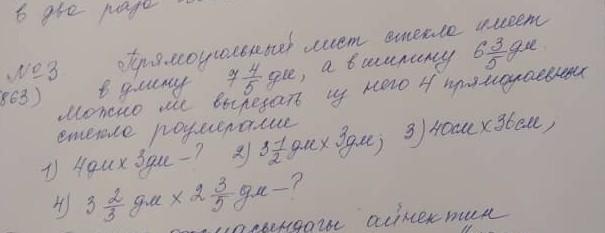 в два раза
№3 Прямоугольный лист стекла имеет
863) в длину 7 4/5 дм, а в ширину 6 3/5 дм.
Можно ли вырезать из него 4 прямоугольных
стекла размерами
1) 4дм х 3дм - ? 2) 3 1/2 дм х 3дм; 3) 40см х 36см,
4) 3 2/3 дм х 2 3/5 дм - ?
айнектин